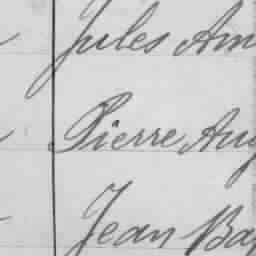 Jules Am
Pierre Aug
Jean Bap